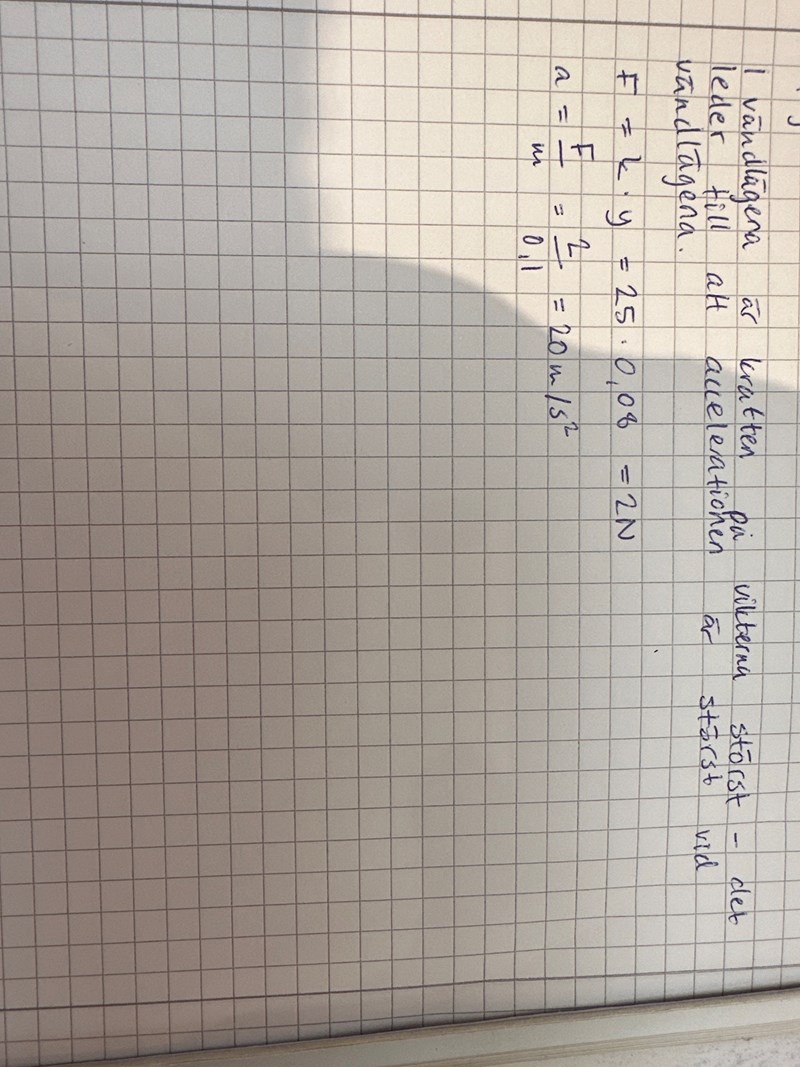 I vändlägena är kraften på vikterna störst – det
leder till att accelerationen är störst vid
vändlägena.
F = k · y = 25 · 0,08 = 2N
a = F/m = 2/0,1 = 20 m/s²